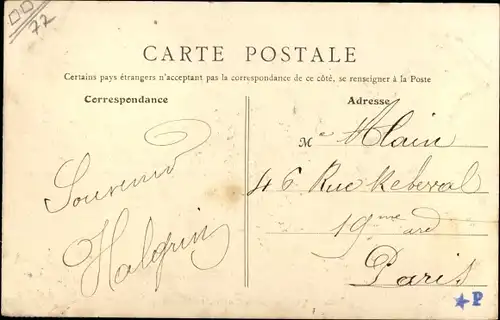 72
CARTE POSTALE
Certains pays étrangers n'acceptant pas la correspondance de ce côté, se renseigner à la Poste
Correspondance
Adresse
Souvenir
Halgrin
Me Alain
46 Rue Rebeval
19me ard
Paris
P